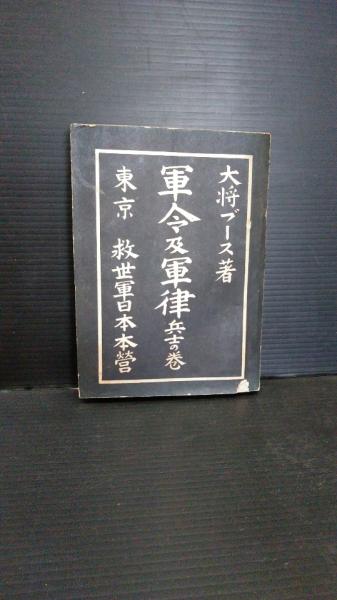 大将ブース著
軍令及軍律 兵士の巻
東京 救世軍日本本營